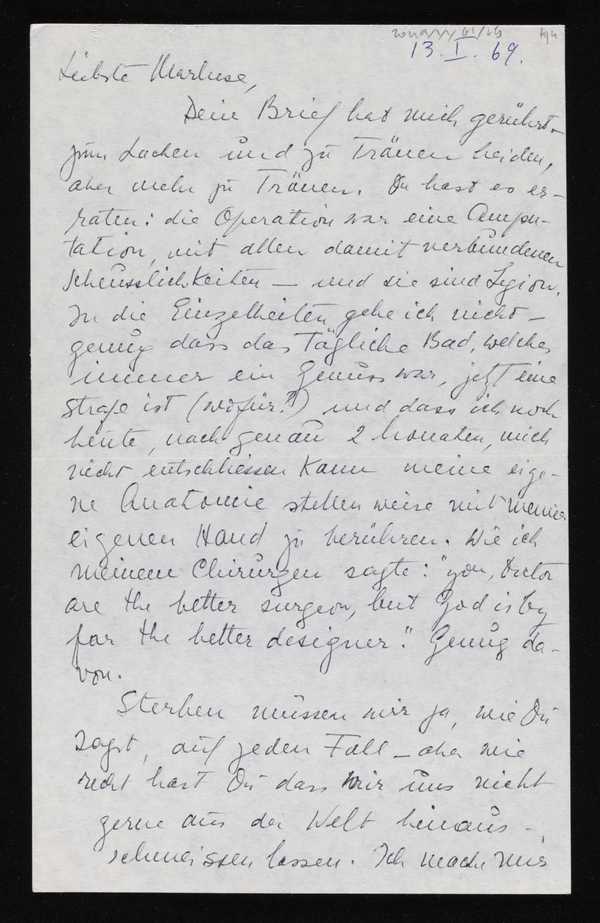 13.I.69.
Liebste Marluse,
Dein Brief hat mich gerührt -
zum Lachen und zu Tränen beiden,
aber mehr zu Tränen. Du hast es er-
raten: die Operation war eine Ampu-
tation, mit allen damit verbundenen
Scheusslichkeiten — und sie sind Legion.
In die Einzelheiten gehe ich nicht -
genug dass das Tägliche Bad, welches
immer ein Genuss war, jetzt eine
Strafe ist (wofür?) und dass ich noch
heute, nach genau 2 Monaten, mich
nicht entschliessen kann meine eige-
ne Anatomie stellenweise mit meiner
eigenen Hand zu berühren. Wie ich
meinem Chirurgen sagte: "you, Doctor
are the better surgeon, but God is by
far the better designer." Genug da-
von.
Sterben müssen wir ja, wie Du
sagst, auf jeden Fall — aber wie
recht hast Du dass wir uns nicht
gerne aus der Welt hinaus-
schmeissen lassen. Ich mache mir